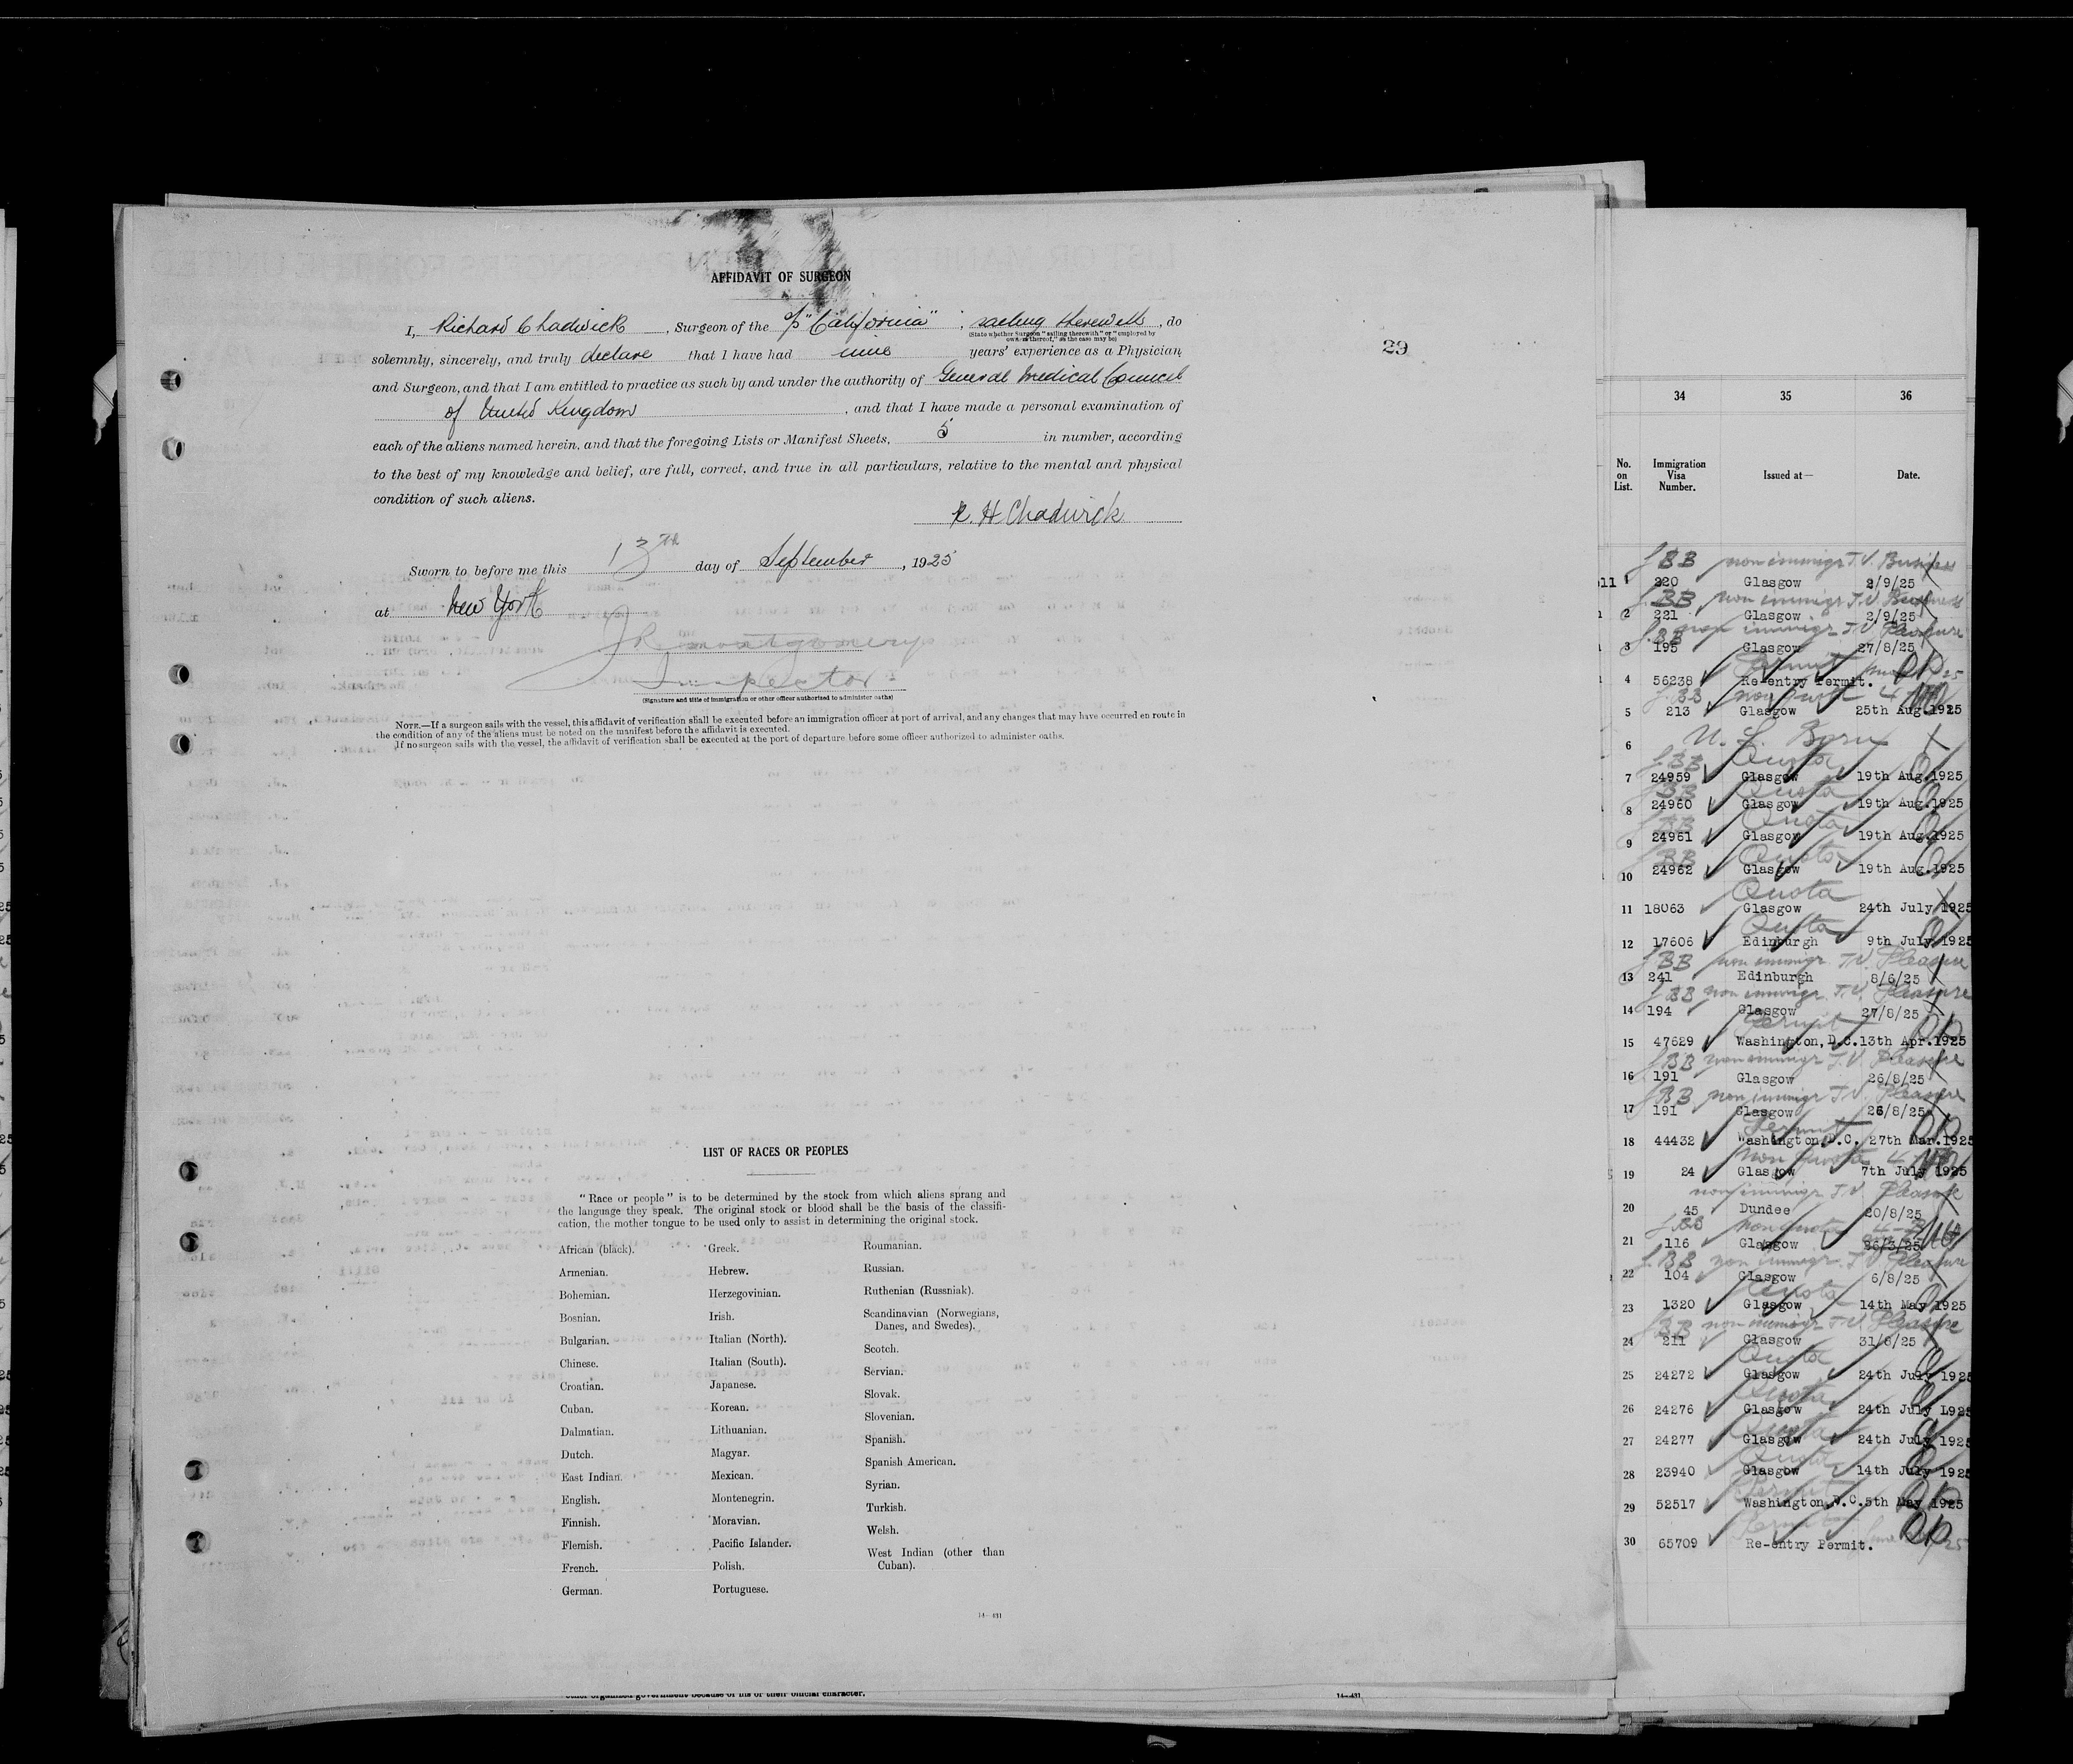 AFFIDAVIT OF SURGEON
I, Richard Chadwick, Surgeon of the "California", sailing therewith, do
(State whether Surgeon "sailing therewith" or "employed by
owners thereof," as the case may be)
solemnly, sincerely, and truly declare that I have had nine years' experience as a Physician
and Surgeon, and that I am entitled to practice as such by and under the authority of General Medical Council
of United Kingdom, and that I have made a personal examination of
each of the aliens named herein, and that the foregoing Lists or Manifest Sheets, 5 in number, according
to the best of my knowledge and belief, are full, correct, and true in all particulars, relative to the mental and physical
condition of such aliens.
R. H. Chadwick
Sworn to before me this 13th day of September, 1925
at New York
J R Montgomery
Inspector
(Signature and title of immigration or other officer authorized to administer oaths)
NOTE.—If a surgeon sails with the vessel, this affidavit of verification shall be executed before an immigration officer at port of arrival, and any changes that may have occurred en route in
the condition of any of the aliens must be noted on the manifest before the affidavit is executed.
If no surgeon sails with the vessel, the affidavit of verification shall be executed at the port of departure before some officer authorized to administer oaths.
29
LIST OF RACES OR PEOPLES
"Race or people" is to be determined by the stock from which aliens sprang and
the language they speak. The original stock or blood shall be the basis of the classifi-
cation, the mother tongue to be used only to assist in determining the original stock.
African (black).
Armenian.
Bohemian.
Bosnian.
Bulgarian.
Chinese.
Croatian.
Cuban.
Dalmatian.
Dutch.
East Indian.
English.
Finnish.
Flemish.
French.
German.
Greek.
Hebrew.
Herzegovinian.
Irish.
Italian (North).
Italian (South).
Japanese.
Korean.
Lithuanian.
Magyar.
Mexican.
Montenegrin.
Moravian.
Pacific Islander.
Polish.
Portuguese.
Roumanian.
Russian.
Ruthenian (Russniak).
Scandinavian (Norwegians,
Danes, and Swedes).
Scotch.
Servian.
Slovak.
Slovenian.
Spanish.
Spanish American.
Syrian.
Turkish.
Welsh.
West Indian (other than
Cuban).
14—431
other organized government because of his or their official character.
14—431
34 35 36
No. on List. Immigration Visa Number. Issued at— Date.
BB non immigr T.V. Business
1 220 Glasgow 2/9/25
BB non immigr T.V. Business
2 221 Glasgow 2/9/25
BB non immigr T.V. Pleasure
3 195 Glasgow 27/8/25
Permit
4 56238 Re-entry Permit.
BB non quota 4
5 213 Glasgow 25th Aug.1925
6 U. S. Born
BB Quota
7 24959 Glasgow 19th Aug.1925
BB Quota
8 24960 Glasgow 19th Aug.1925
BB Quota
9 24961 Glasgow 19th Aug.1925
BB Quota
10 24962 Glasgow 19th Aug.1925
Quota
11 18063 Glasgow 24th July 1925
Quota
12 17606 Edinburgh 9th July 1925
BB non immigr. T.V. Pleasure
13 241 Edinburgh 8/6/25
BB non immigr. T.V. Pleasure
14 194 Glasgow 27/8/25
Permit
15 47629 Washington, D.C. 13th Apr.1925
BB non immigr T.V. Pleasure
16 191 Glasgow 26/8/25
BB non immigr T.V. Pleasure
17 191 Glasgow 26/8/25
Permit
18 44432 Washington, D.C. 27th Mar.1925
non quota 4
19 24 Glasgow 7th July 1925
non immigr T.V. Pleasure
20 45 Dundee 20/8/25
BB non quota 4-B
21 116 Glasgow 26/3/25
BB non immigr. T.V. Pleasure
22 104 Glasgow 6/8/25
Quota
23 1320 Glasgow 14th May 1925
BB non immigr T.V. Pleasure
24 211 Glasgow 31/8/25
Quota
25 24272 Glasgow 24th July 1925
Quota
26 24276 Glasgow 24th July 1925
Quota
27 24277 Glasgow 24th July 1925
Quota
28 23940 Glasgow 14th July 1925
Permit
29 52517 Washington, D.C. 5th May 1925
Permit
30 65709 Re-entry Permit.